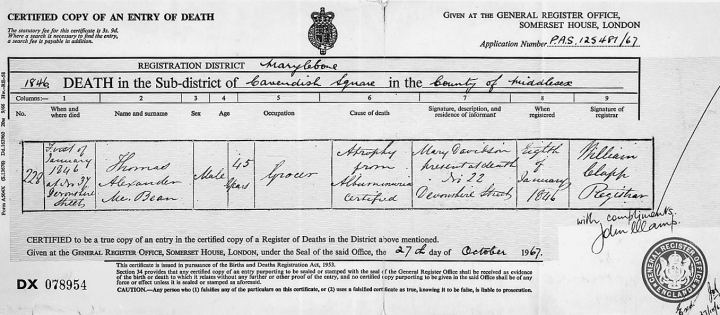 CERTIFIED COPY OF AN ENTRY OF DEATH
GIVEN AT THE GENERAL REGISTER OFFICE,
SOMERSET HOUSE, LONDON
The statutory fee for this certificate is 3s. 9d.
Where a search is necessary to find the entry,
a search fee is payable in addition.
Application Number P.A.S. 125481/67
REGISTRATION DISTRICT Marylebone
1846 DEATH in the Sub-district of Cavendish Square in the County of Middlesex
Columns:— 1 2 3 4 5 6 7 8 9
No. When and where died Name and surname Sex Age Occupation Cause of death Signature, description, and residence of informant When registered Signature of registrar
228
First of
January
1846
at No 37
Devonshire
Street
Thomas
Alexander
Mc. Bean
Male
45
Years
Grocer
Atrophy
from
Albuminuria
Certified
Mary Davidson
present at death
No 22
Devonshire Street
Eighth
of
January
1846
William
Clapp
Registrar
with compliments
John
CERTIFIED to be a true copy of an entry in the certified copy of a Register of Deaths in the District above mentioned.
Given at the GENERAL REGISTER OFFICE, SOMERSET HOUSE, LONDON, under the Seal of the said Office, the 27th day of October 1967.
DX 078954
This certificate is issued in pursuance of the Births and Deaths Registration Act, 1953.
Section 34 provides that any certified copy of an entry purporting to be sealed or stamped with the seal of the General Register Office shall be received as evidence
of the birth or death to which it relates without any further or other proof of the entry, and no certified copy purporting to be given in the said Office shall be of any
force or effect unless it is sealed or stamped as aforesaid.
CAUTION.—Any person who (1) falsifies any of the particulars on this certificate, or (2) uses a falsified certificate as true, knowing it to be false, is liable to prosecution.
GENERAL REGISTER OFFICE
ENGLAND